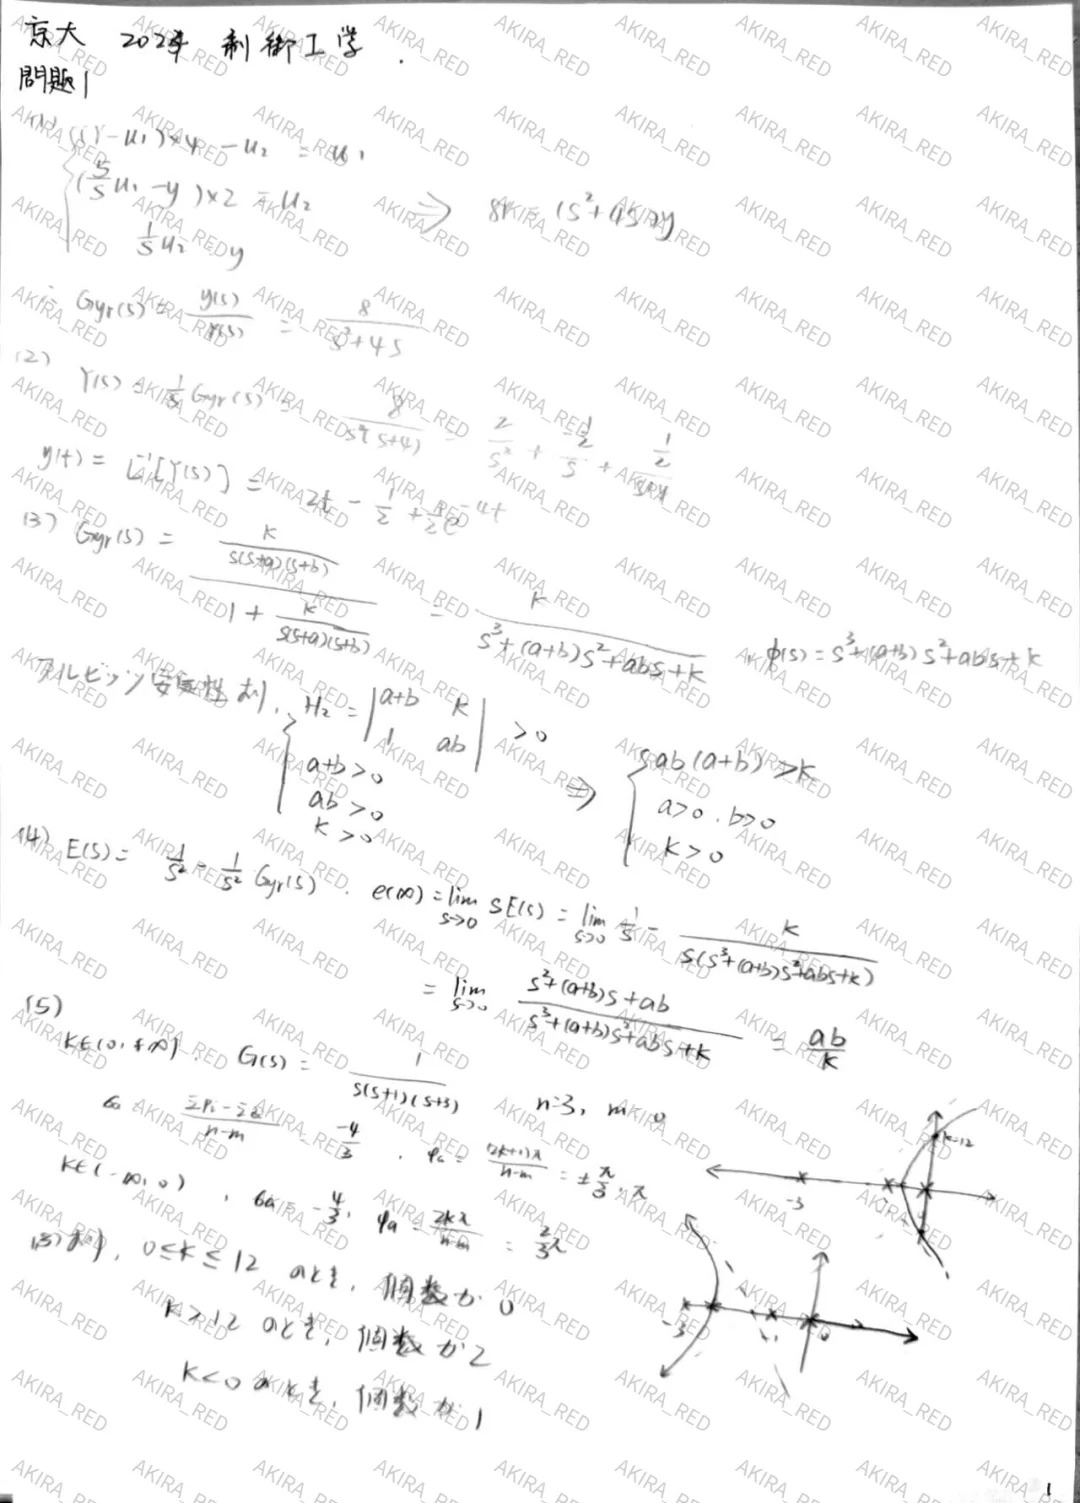 京大 2024 制御工学
問題1
(1) (r-u₁)×4 - u₂ = u₁
(5/s u₁ - y)×2 = u₂ ⇒ 8r = (s²+4s)y
1/s u₂ = y
∴ Gyr(s) = y(s)/r(s) = 8/(s²+4s)
(2) Y(s) = 1/s Gyr(s) = 8/(s²(s+4)) = 2/s² + (-1/2)/s + (1/2)/(s+4)
y(t) = L⁻¹[Y(s)] = 2t - 1/2 + 1/2 e^(-4t)
(3) Gyr(s) = (k/(s(s+a)(s+b)))/(1 + k/(s(s+a)(s+b))) = k/(s³+(a+b)s²+abs+k) ∴ φ(s) = s³+(a+b)s²+abs+k
フルビッツ安定性より, H₂ = |a+b k; 1 ab| > 0
a+b>0
ab>0
k>0
⇒ ab(a+b) > k
a>0, b>0
k>0
(4) E(s) = 1/s² - 1/s² Gyr(s). e(∞) = lim s→0 sE(s) = lim s→0 1/s - k/(s(s³+(a+b)s²+abs+k))
= lim s→0 (s²+(a+b)s+ab)/(s³+(a+b)s²+abs+k) = ab/k
(5)
k∈(0,+∞), G(s) = 1/(s(s+1)(s+3)) n=3, m=0
σa = (Σpi-Σzi)/(n-m) = -4/3, φa = (2k+1)π/(n-m) = ±π/3, π
k∈(-∞,0), σa = -4/3, φa = 2kπ/(n-m) = 2/3π
(3)より, 0≤k≤12 のとき, 個数が 0
k>12 のとき, 個数が 2
k<0 のとき, 個数が 1
k=12
-3
-3
-1
0
1
AKIRA_RED